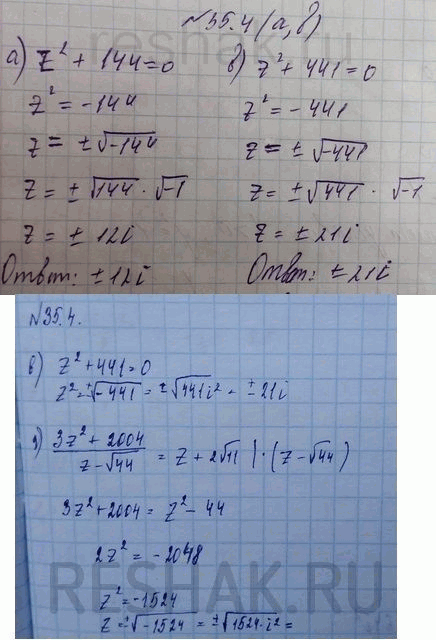 №35.4 (а,в)
а) z² + 144 = 0
z² = -144
z = ±√-144
z = ±√144 · √-1
z = ± 12i
Ответ: ±12i
в) z² + 441 = 0
z² = -441
z = ± √-441
z = ±√441 · √-1
z = ±21i
Ответ: ±21i
№35.4.
в) z² + 441 = 0
z² = ±√-441 = ±√441i² = ±21i
(3z² + 2004)/(z - √44) = z + 2√11 | · (z - √44)
3z² + 2004 = z² - 44
2z² = -2048
z² = -1524
z = ±√-1524 = ±√1524·i² =
RESHAK.RU